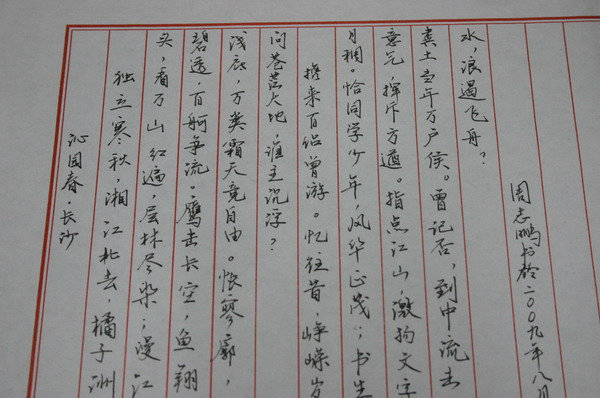 沁园春·长沙
独立寒秋，湘江北去，橘子洲
头，看万山红遍，层林尽染；漫江
碧透，百舸争流。鹰击长空，鱼翔
浅底，万类霜天竞自由。怅寥廓，
问苍茫大地，谁主沉浮？
携来百侣曾游。忆往昔，峥嵘岁
月稠。恰同学少年，风华正茂；书生
意气，挥斥方遒。指点江山，激扬文字
粪土当年万户侯。曾记否，到中流击
水，浪遏飞舟？
周志鹏书於二〇〇九年八月